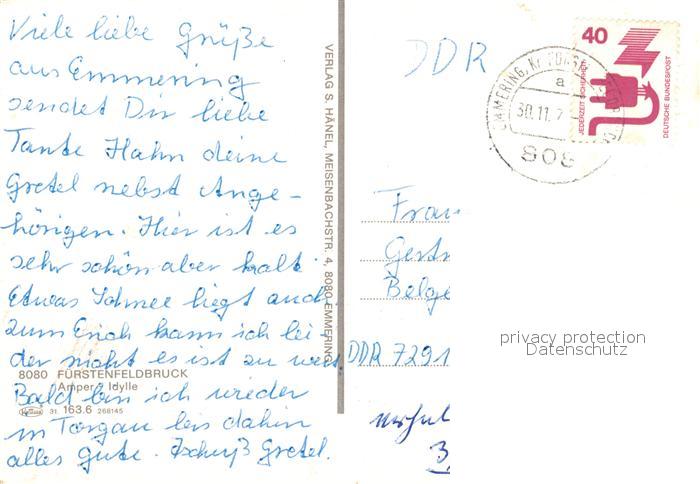 Viele liebe Grüße
aus Emmering
sendet Dir liebe
Tante Hahn deine
Gretel nebst Ange-
hörigen. Hier ist es
sehr schön aber kalt.
Etwas Schnee liegt auch
zum Erich kann ich lei-
der nicht es ist zu weit.
8080 FÜRSTENFELDBRUCK
Amper - Idylle
Bald bin ich wieder
31 163.6 268145
in Torgau bis dahin
alles gute. Gretel.
VERLAG S. HANEL, MEISENBACHSTR. 4, 8080 EMMERING
DDR
EMMERING, Kr
a
30.11.7
808
40
JEDERZEIT SICHERHEIT
DEUTSCHE BUNDESPOST
Frau
Gertr
Belge
DDR 7291
privacy protection
Datenschutz